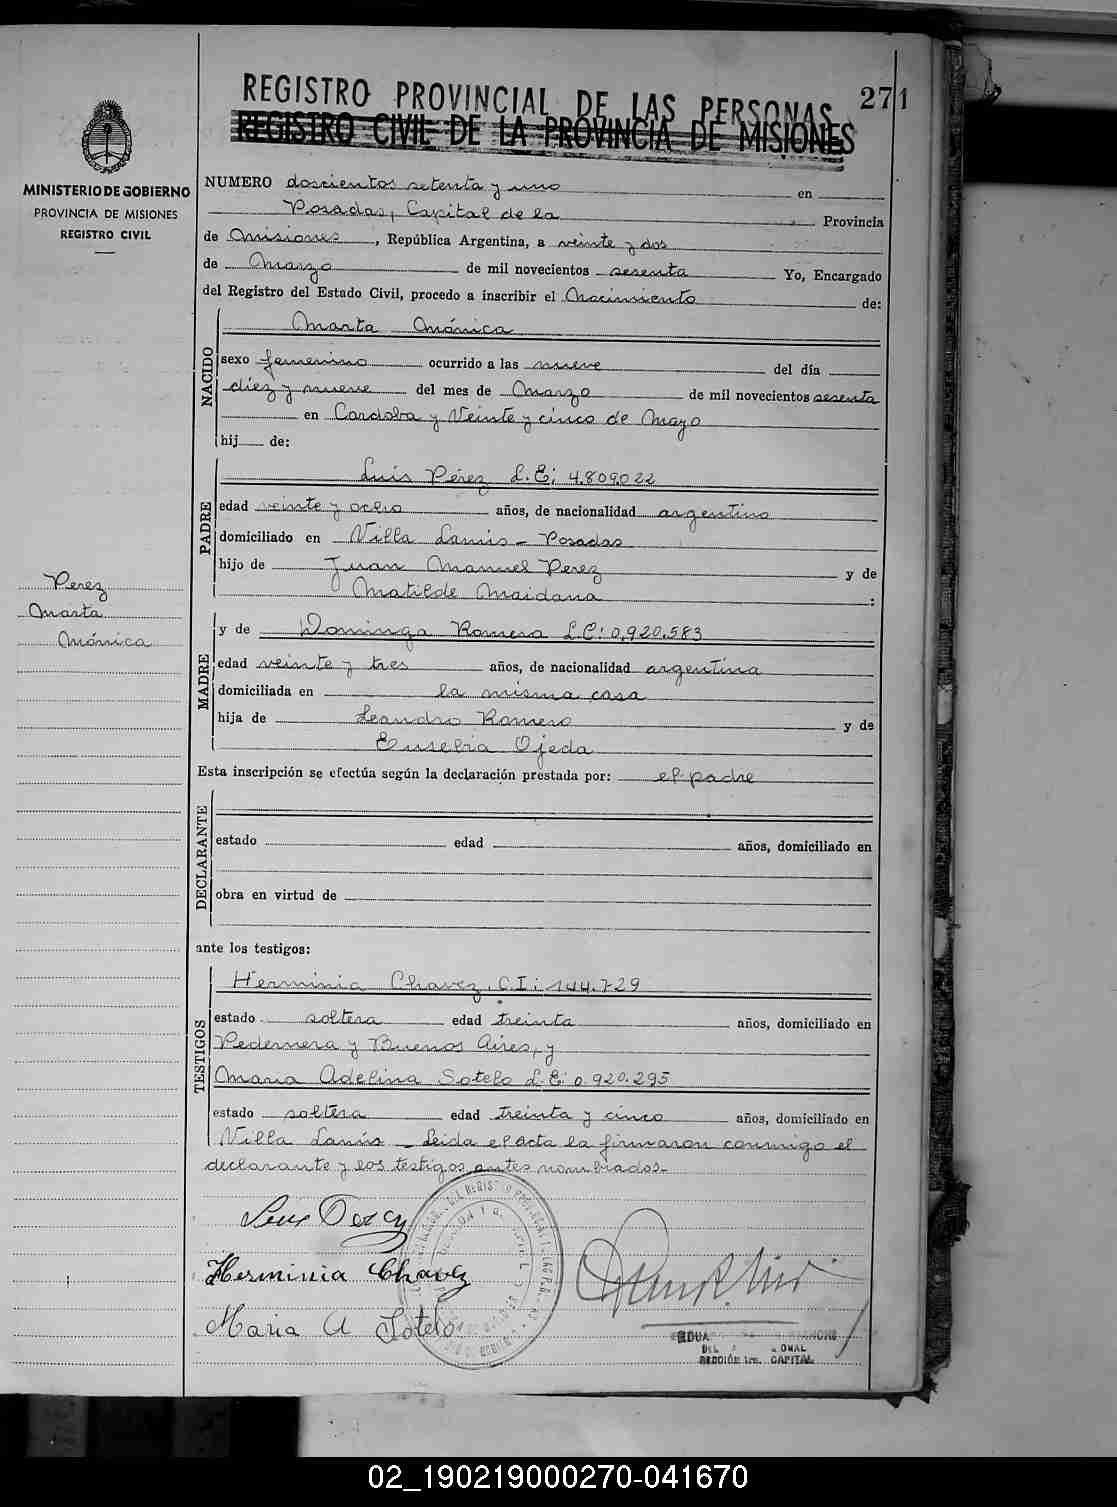 REGISTRO PROVINCIAL DE LAS PERSONAS
271
REGISTRO CIVIL DE LA PROVINCIA DE MISIONES
MINISTERIO DE GOBIERNO
PROVINCIA DE MISIONES
REGISTRO CIVIL
NUMERO doscientos setenta y uno en
Posadas, Capital de la Provincia
de Misiones, República Argentina, a veinte y dos
de Marzo de mil novecientos sesenta Yo, Encargado
del Registro del Estado Civil, procedo a inscribir el Nacimiento de:
NACIDO
Marta Mónica
sexo femenino ocurrido a las nueve del día
diez y nueve del mes de Marzo de mil novecientos sesenta
en Cordoba y Veinte y cinco de Mayo
hij de:
PADRE
Luis Pérez L.E: 4.809.022
edad veinte y ocho años, de nacionalidad argentino
domiciliado en Villa Lanús - Posadas
hijo de Juan Manuel Perez y de
Matilde Maidana :
Perez
Marta
Mónica
MADRE
y de Dominga Romero L.C: 0.920.583
edad veinte y tres años, de nacionalidad argentina
domiciliada en la misma casa
hija de Leandro Romero y de
Eusebia Ojeda
Esta inscripción se efectúa según la declaración prestada por: el padre
DECLARANTE
estado edad años, domiciliado en
obra en virtud de
ante los testigos:
TESTIGOS
Herminia Chavez, C.I: 144.729
estado soltera edad treinta años, domiciliado en
Pedernera y Buenos Aires, y
Maria Adelina Sotelo L.E: 0.920.295
estado soltera edad treinta y cinco años, domiciliado en
Villa Lanús - Leida el acta la firmaron conmigo el
declarante y los testigos antes nombrados.-
Herminia Chavez
Maria A Sotelo
CAPITAL
02_190219000270-041670